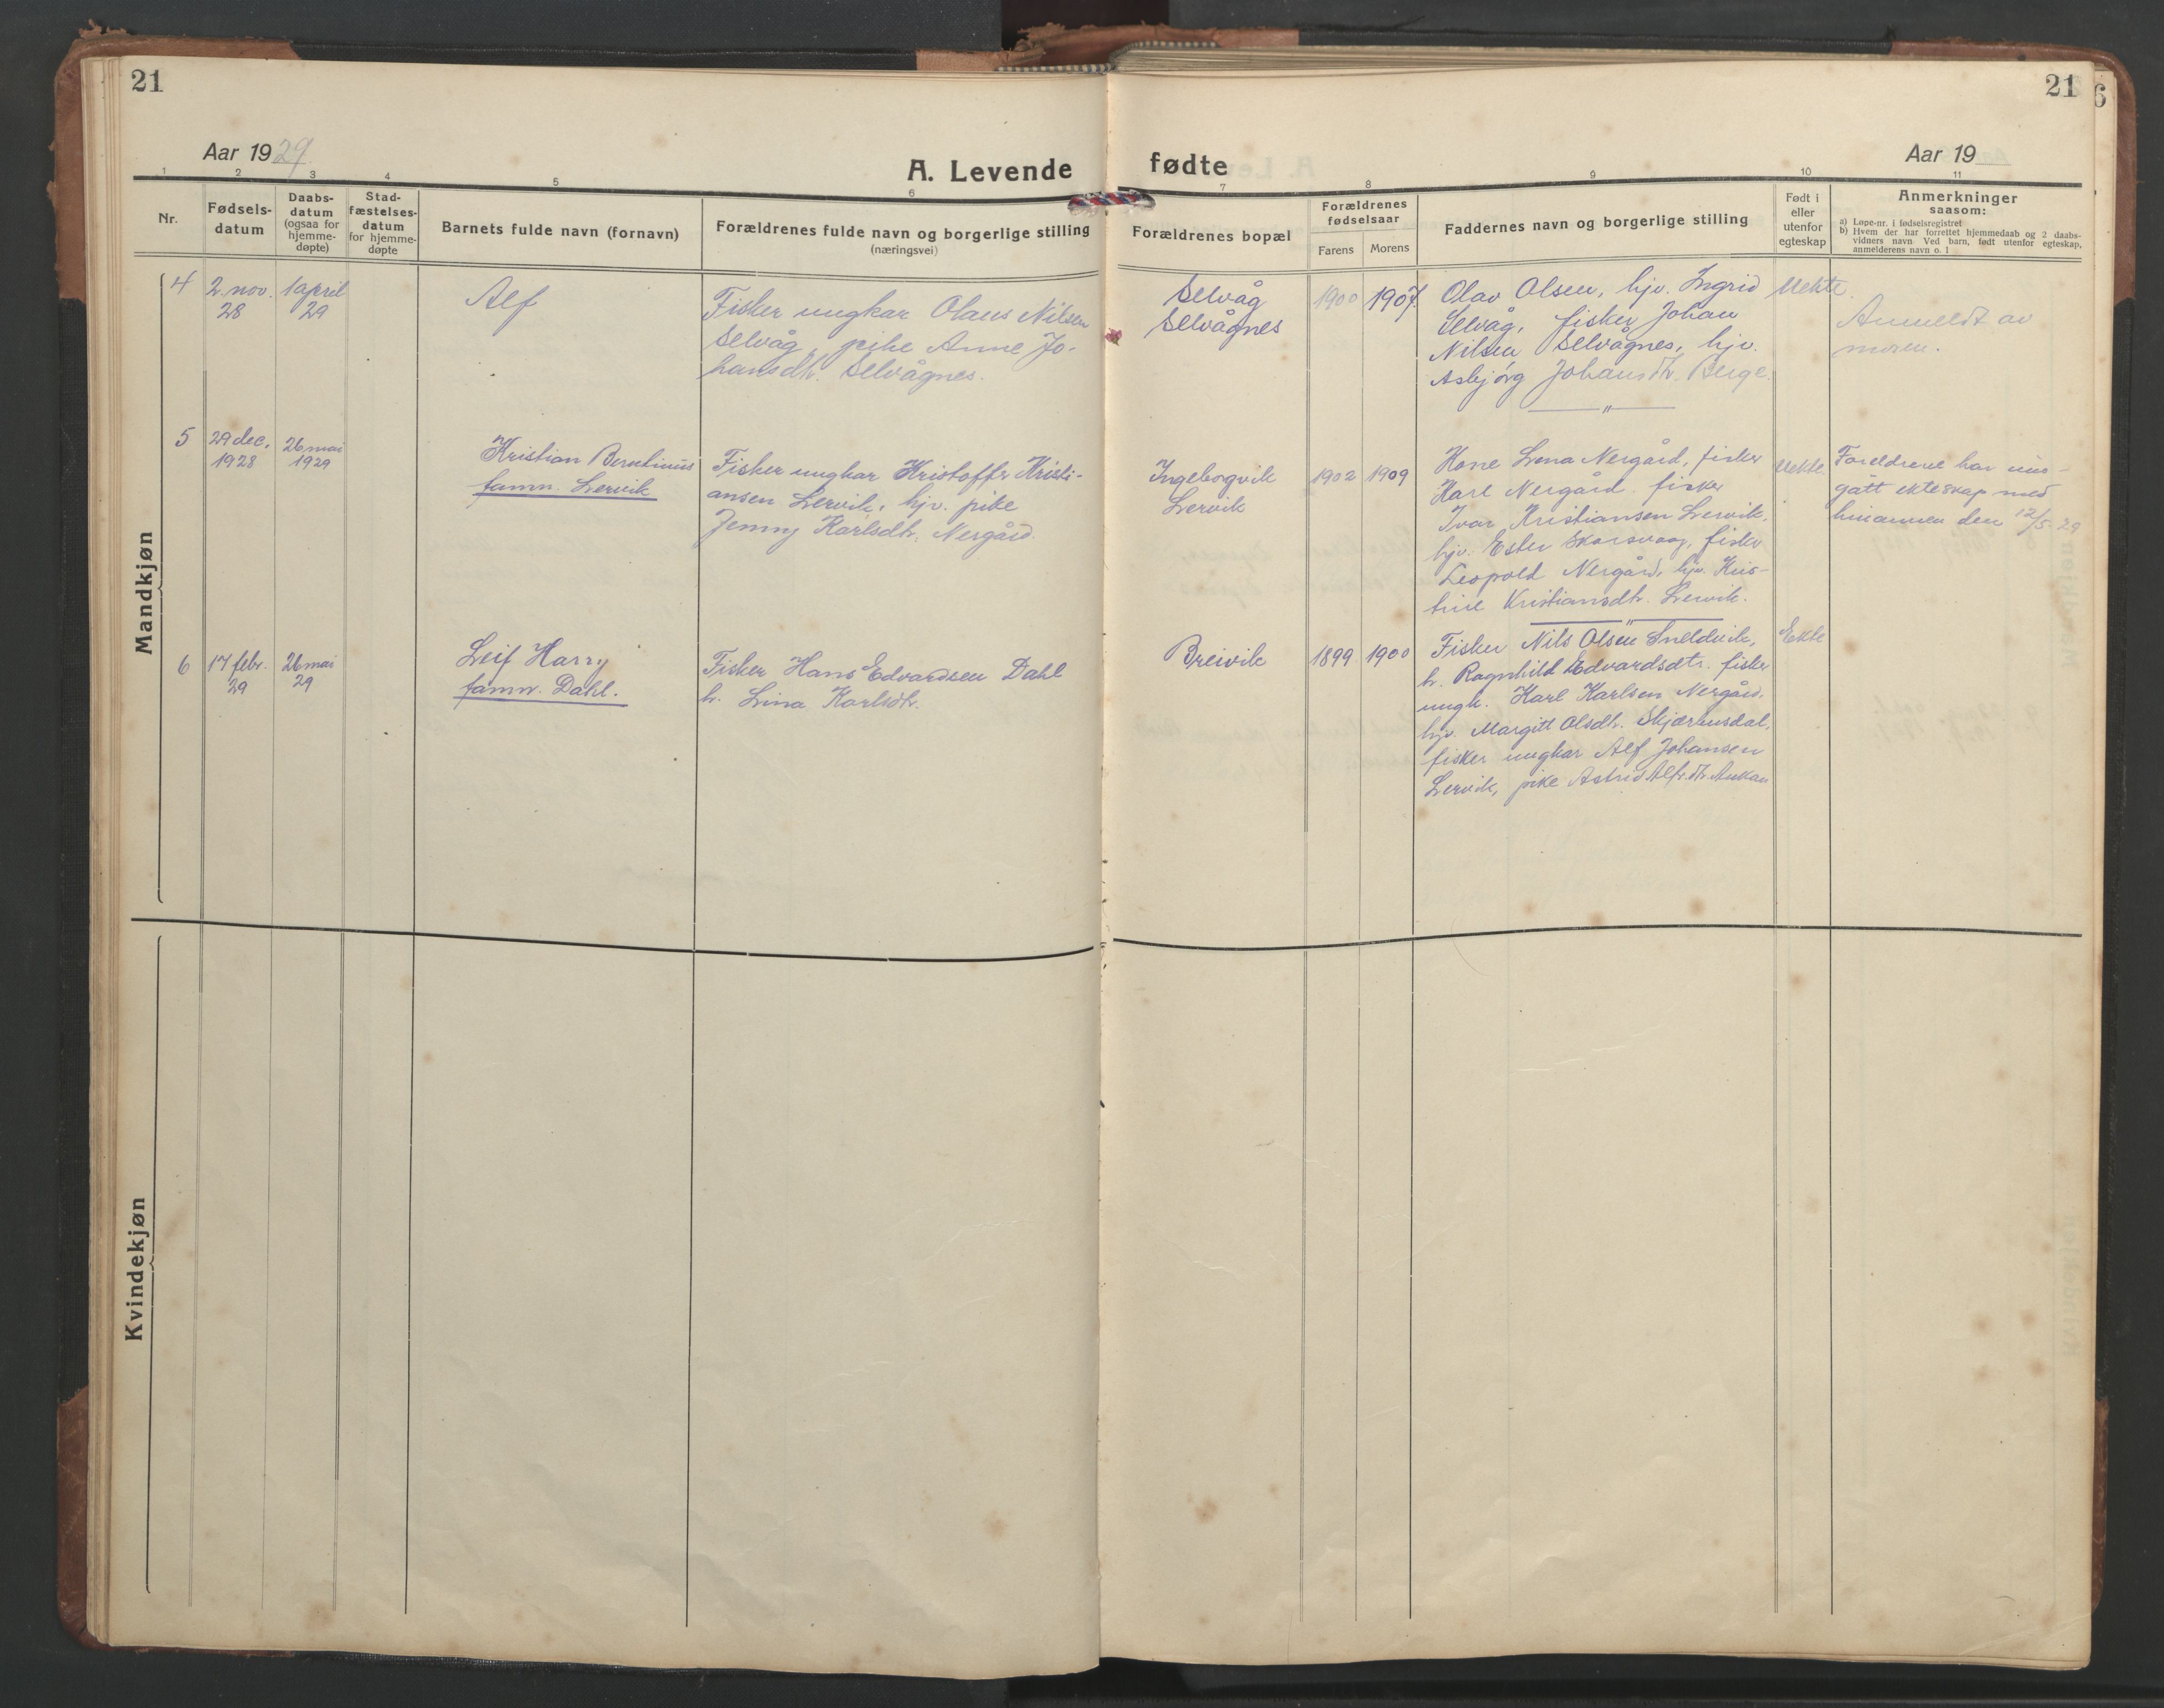 21
Aar 1929
A. Levende
1 2 3 4 5 6
Nr.
Fødsels-
datum
Daabs-
datum
(ogsaa for
hjemme-
døpte)
Stad-
fæstelses-
datum
for hjemme-
døpte
Barnets fulde navn (fornavn)
Forældrenes fulde navn og borgerlige stilling
(næringsvei)
Mandkjøn
4
2. nov.
28
1 april
29
Alf
Fisker ungkar Olaus Nilsen
Selvåg, pike Anne Jo-
hansdtr. Selvågnes.
5
29 dec.
1928
26 mai
1929
Kristian Berntinius
famn. Lervik
Fisker ungkar Kristoffer Kristi-
ansen Lervik, hjv. pike
Jenny Karlsdtr. Nergård.
6
17 febr.
29
26 mai
29
Leif Harry
famn. Dahl.
Fisker Hans Edvardsen Dahl
h. Lina Karlsdtr.
Kvindekjøn
21
6
Aar 19
fødte
7 8 9 10 11
Forældrenes bopæl
Forældrenes
fødselsaar
Farens Morens
Faddernes navn og borgerlige stilling
Født i
eller
utenfor
egteskap
Anmerkninger
saasom:
a) Løpe-nr. i fødselsregistret
b) Hvem der har forrettet hjemmedaab og 2 daabs-
vidners navn. Ved barn, født utenfor egteskap,
anmelderens navn o. l
Selvåg
Selvågnes
1900 1907.
Olav Olsen, hjv. Ingrid
Selvåg, fisker Johan
Nilsen Selvågnes, hjv.
Asbjørg Johansdtr. Berge.
"
Uekte.
Anmeldt av
moren.
Ingeborgvik
Lervik
1902 1909
Kone Lena Nergård, fisker
Karl Nergård. fisker
Ivar Kristiansen Lervik,
hjv. Ester Skorsvaag, fisker
Leopold Nergård, hjv. Kris-
tine Kristiansdtr. Lervik.
"
Uekte
Foreldrene har inn-
gått ekteskap med
hinannen den 12/5 29
Breivik
1899 1900
Fisker Nils Olsen
h. Ragnhild Edvardsdtr. fisker
ungk. Karl Karlsen Nergård,
hjv. Margitt Olsdtr.
fisker ungkar Alf Johansen
Lervik, pike Astrid Alfr.dtr.
Ekte